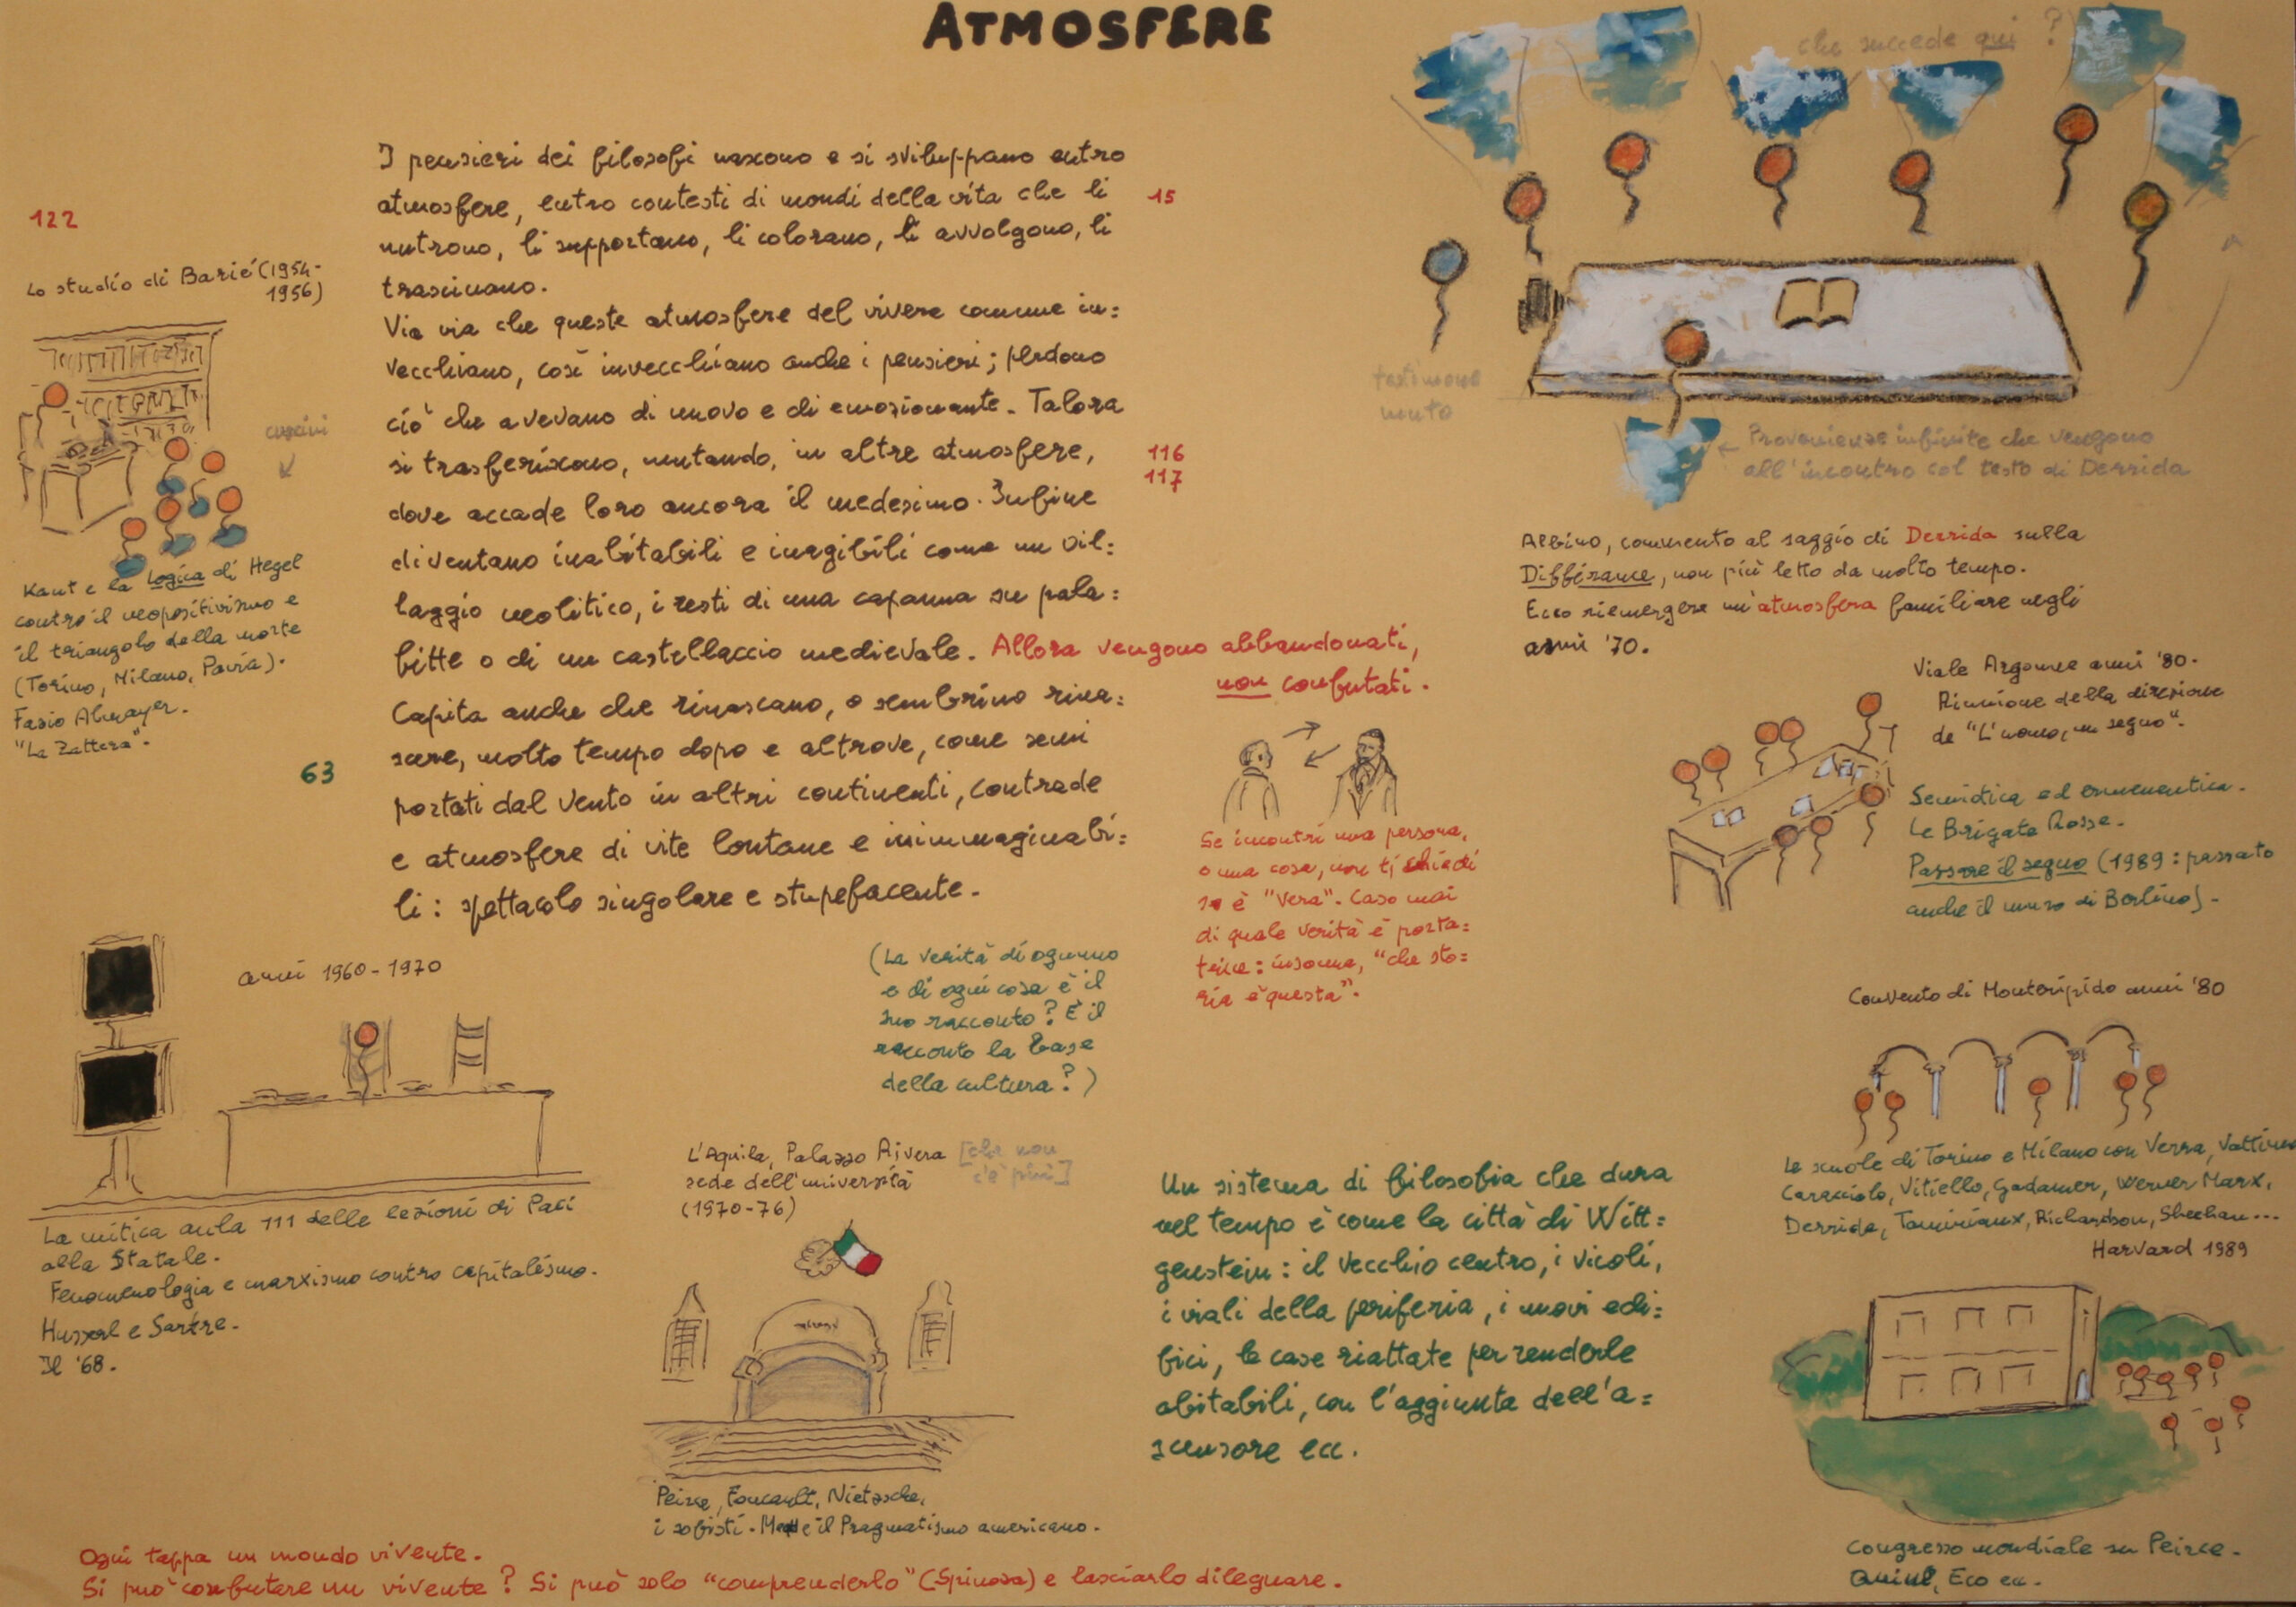 ATMOSFERE
che succede qui ?
122
I pensieri dei filosofi nascono e si sviluppano entro
atmosfere, entro contesti di mondi della vita che li
nutrono, li supportano, li colorano, li avvolgono, li
trascinano.
15
Via via che queste atmosfere del vivere comune in=
vecchiano, così invecchiano anche i pensieri; perdono
ciò che avevano di nuovo e di emozionante. Talora
si trasferiscono, mutando, in altre atmosfere,
116
117
dove accade loro ancora il medesimo. Infine
diventano inabitabili e inagibili come un vil=
laggio neolitico, i resti di una capanna su pala=
fitte o di un castellaccio medievale. Allora vengono abbandonati,
non confutati.
Capita anche che rinascano, o sembrino rina=
scere, molto tempo dopo e altrove, come semi
63
portati dal vento in altri continenti, contrade
e atmosfere di vite lontane e inimmaginabi=
li: spettacolo singolare e stupefacente.
Lo studio di Barié (1954-
1956)
cuscini
Kant e la Logica di Hegel
contro il neopositivismo e
il triangolo della morte
(Torino, Milano, Pavia).
Fazio Almayer.
"La Zattera".
testimone
muto
Provenienze infinite che vengono
all'incontro col testo di Derrida
Albino, commento al saggio di Derrida sulla
Différance, non più letto da molto tempo.
Ecco riemergere un'atmosfera familiare negli
anni '70.
Viale Argonne anni '80.
Riunione della direzione
de "L'uomo, un segno".
Semiotica ed ermeneutica.
Le Brigate Rosse.
Passare il segno (1989: passato
anche il muro di Berlino).
Se incontri una persona,
o una cosa, non ti chiedi
se è "vera". Caso mai
di quale verità è porta=
trice: insomma, "che sto=
ria è questa".
(La verità di ognuno
e di ogni cosa è il
suo racconto? È il
racconto la base
della cultura?)
anni 1960-1970
La mitica aula 111 delle lezioni di Paci
alla Statale.
Fenomenologia e marxismo contro capitalismo.
Husserl e Sartre.
Il '68.
L'Aquila, Palazzo Rivera [che non
c'è più]
sede dell'università
(1970-76)
Peirce, Foucault, Nietzsche,
i sofisti. Mead e il Pragmatismo americano.
Un sistema di filosofia che dura
nel tempo è come la città di Witt=
genstein: il vecchio centro, i vicoli,
i viali della periferia, i nuovi edi=
fici, le case riattate per renderle
abitabili, con l'aggiunta dell'a=
scensore ecc.
Convento di Monteripido anni '80
Le scuole di Torino e Milano con Verra, Vattimo
Caracciolo, Vitiello, Gadamer, Werner Marx,
Derrida, Taminiaux, Richardson, Sheehan...
Harvard 1989
Congresso mondiale su Peirce.
Quine, Eco ecc.
Ogni tappa un mondo vivente.
Si può confutare un vivente? Si può solo "comprenderlo" (Spinoza) e lasciarlo dileguare.